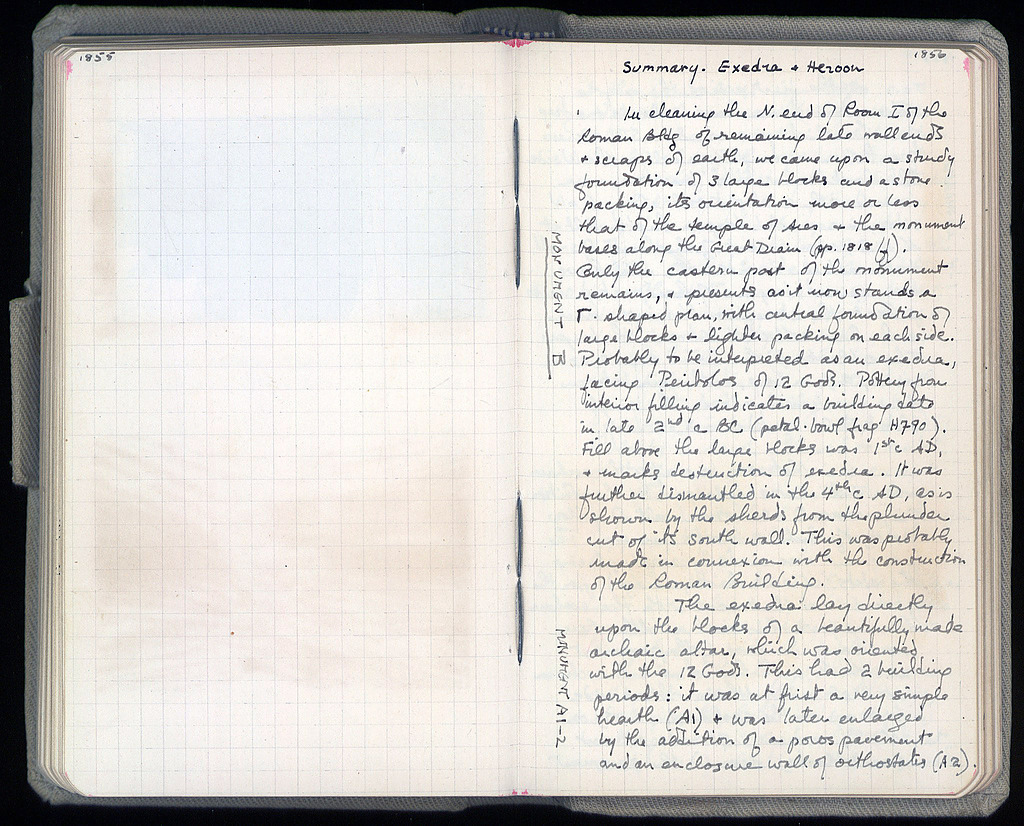 1855
1856
Summary. Exedra + Heroon
In cleaning the N. end of Room I of the
Roman Bldg of remaining late wall ends
+ scraps of earth, we came upon a sturdy
foundation of 3 large blocks and a stone
packing, its orientation more or less
that of the temple of Ares + the monument
bases along the Great Drain (pp. 1818 ff).
MONUMENT B
Only the eastern part of the monument
remains, + presents as it now stands a
Γ-shaped plan, with central foundation of
large blocks + lighter packing on each side.
Probably to be interpreted as an exedra,
facing Peribolos of 12 Gods. Pottery from
interior filling indicates a building date
in late 2nd c BC (petal-bowl frag H790).
Fill above the large blocks was 1st c AD,
+ marks destruction of exedra. It was
further dismantled in the 4th c AD, as is
shown by the sherds from the plunder
cut of its south wall. This was probably
made in connexion with the construction
of the Roman Building.
The exedra lay directly
upon the blocks of a beautifully made
archaic altar, which was oriented
with the 12 Gods. This had 2 building
MONUMENT A1-2
periods: it was at frist a very simple
hearth (A1) + was later enlarged
by the addition of a poros pavement
and an enclosure wall of orthostates (A2).